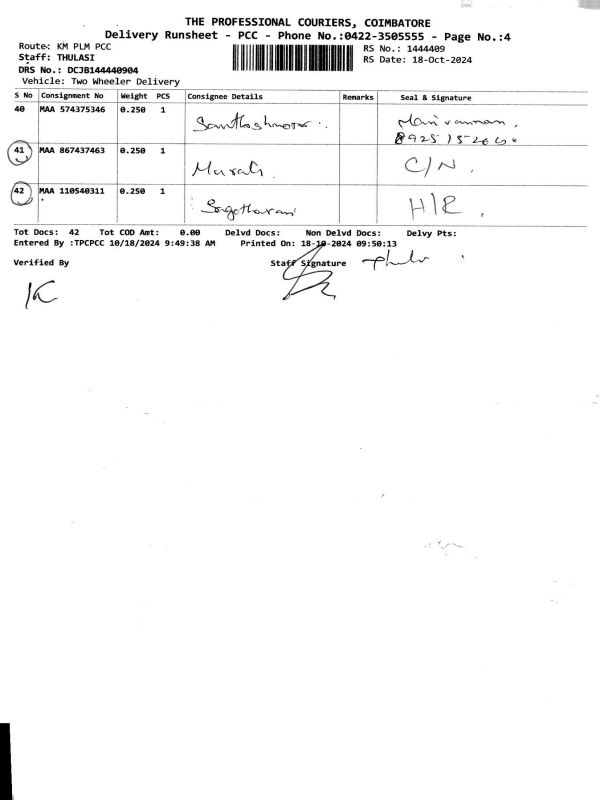 THE PROFESSIONAL COURIERS, COIMBATORE
Delivery Runsheet - PCC - Phone No.:0422-3505555 - Page No.:4
Route: KM PLM PCC
RS No.: 1444409
Staff: THULASI
RS Date: 18-Oct-2024
DRS No.: DCJB144440904
Vehicle: Two Wheeler Delivery
S No Consignment No Weight PCS Consignee Details Remarks Seal & Signature
40 MAA 574375346 0.250 1
41 MAA 867437463 0.250 1 C/N.
42 MAA 110540311 0.250 1 H/R.
Tot Docs: 42 Tot COD Amt: 0.00 Delvd Docs: Non Delvd Docs: Delvy Pts:
Entered By :TPCPCC 10/18/2024 9:49:38 AM Printed On: 18-10-2024 09:50:13
Verified By Staff Signature